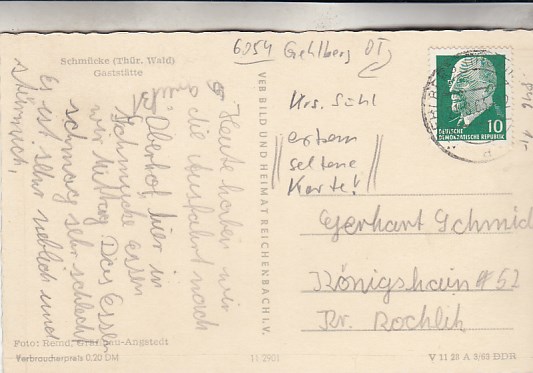 Schmücke (Thür. Wald)
Gaststätte
Heute haben wir
die Ausfahrt nach
Oberhof, hier in
Schmücke essen
wir Mittag Das Essen
schmeg sehr schlecht
Es ist sehr neblich und
stürmisch,
VEB BILD UND HEIMAT REICHENBACH I. V.
6054 Gehlberg OT
Krs. Suhl
extrem
seltene
Karte!
DEUTSCHE
DEMOKRATISCHE REPUBLIK
10
Gerhart Schmid
Königshain # 52
Kr. Rochlitz
Foto: Remd, Gräfinau-Angstedt
Verbraucherpreis 0,20 DM
11 2901
V 11 28 A 3/63 DDR